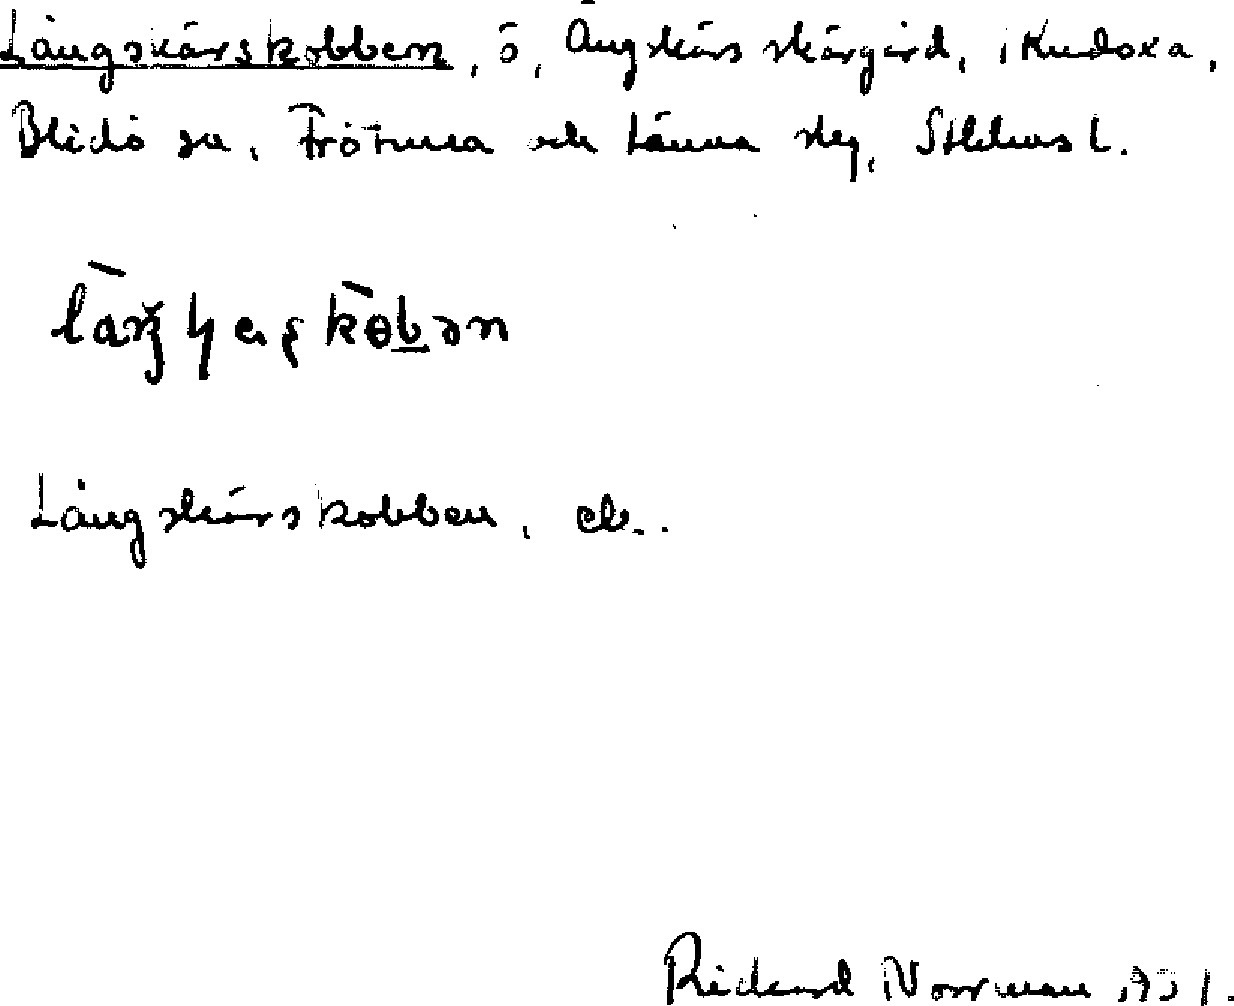 Långskärskobben, ö, Ängskärs skärgård, i Kudoxa,
Blidö sn, Frötuna och Länna skg, Sthlms l.
Långskärskobben, ek.
Rickard Norrman 1931.